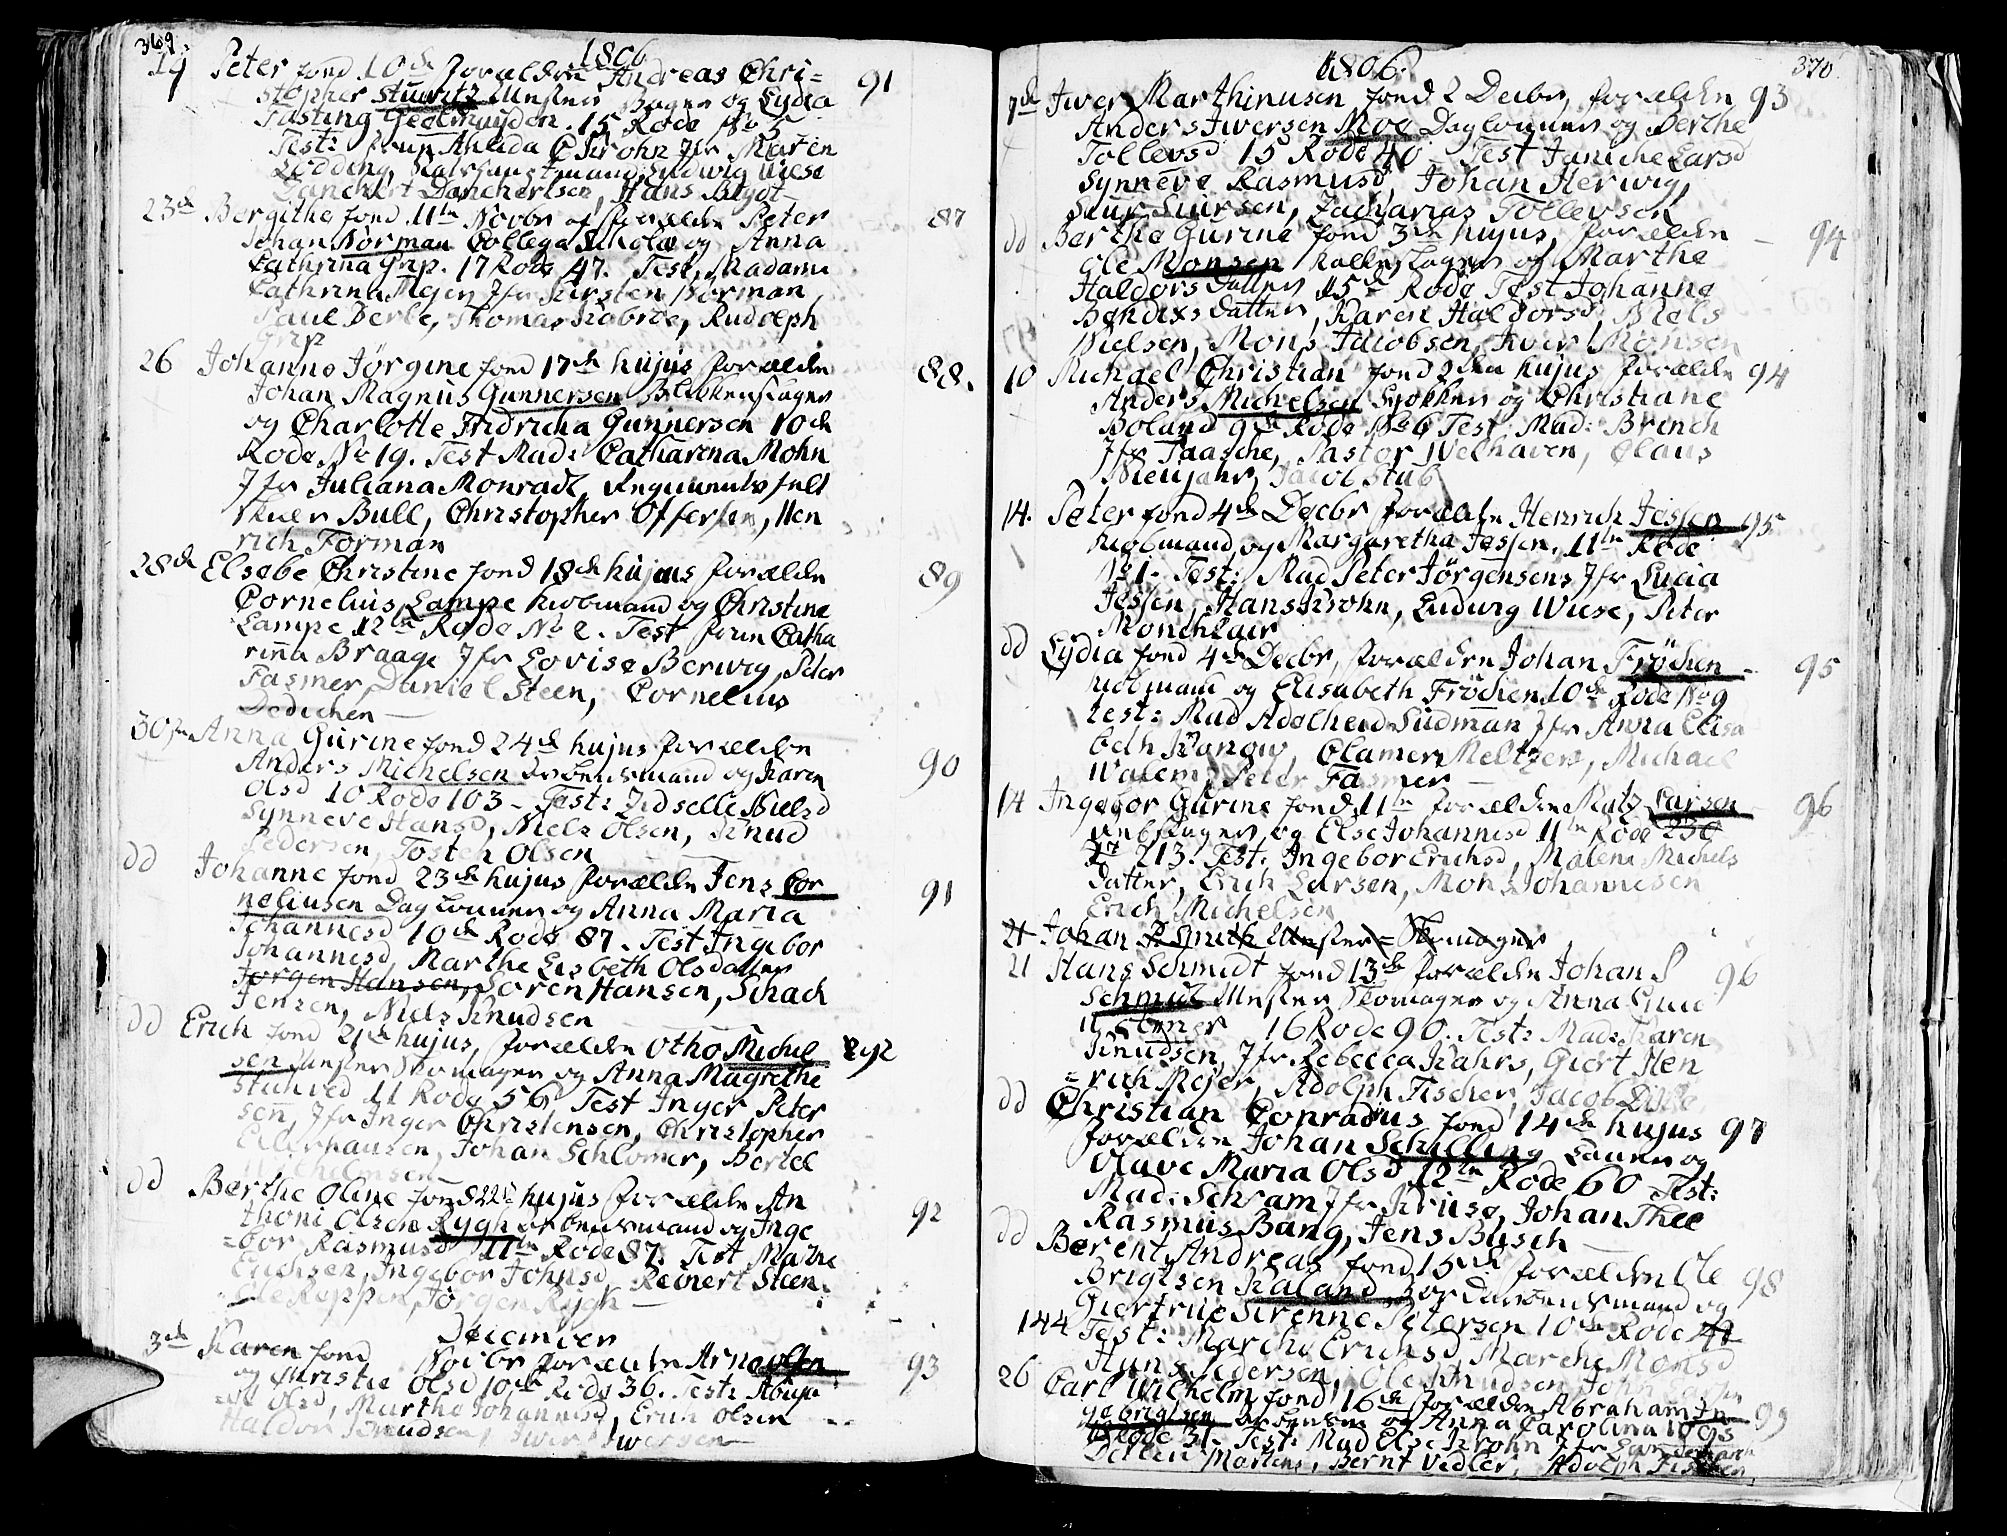 369.
1806
19 Peter fond 10de forældre Andreas Chri= 91
stopher Stuwitz Mester Bager og Lydia
Fasting Geelmuyden. 15 Rode No 5
Test: frue Ahlida C Krohn Jfr Maren
Rødding, Ludwig Wiese
Danchert Danchertsen, Hans Blydt
23de Bergithe fond 11te Novbr forældre Peter 87
Johan Norman Collega Schola og Anna
Cathrina Grip. 17 Rode 47. Test, Madame
Cathrina Mejer Jfr Kirsten Norman
Paul Berle, Thomas Krabroe, Rudolph
Grip
26 Johanne Jörgine fond 17de hujus forældre 88.
Johan Magnus Gunnersen Blokkenslager
og Charlotte Fridricha Gunnersen 10de
Rode No 19. Test Mad: Catharina Mohn
Jfr Juliana Monradt, Regimentsfelt
skier Bull, Christopher Offersen, Hen
rich Forman
28de Elsebe Christine fond 18de hujus forældre 89
Cornelius Lampe kiøbmand og Christine
Lampe 12te Rode No 2. Test frue Catha
rinna Braage Jfr Lovise Berwig, Peter
Fasmer, Daniel Steen, Cornelius
Dedichen
30 Anna Gurine fond 24de hujus forældre
Anders Michelsen Arbeidsmand og Karen 90
Olsd 10 Rode 103 - Test: Zidselle Nielsd
Synneve Hansd, Niels Olsen, Knud
Pedersen, Tosten Olsen
dd Johanne fond 23de hujus forældre Jens Cor
neliusen Daglönner og Anna Maria 91
Johannesd 10de Rode 87. Test Ingebor
Johannesd, Marthe Lisbeth Olsdatter
Jørgen Hansen, Søren Hansen, Schach
Jensen, Niels Knudsen
dd Erich fond 21de hujus, forældre Otho Michel 92
sen Mester Skomager og Anna Magrethe
Stuhved 11 Rode 56 Test Inger Peter
sen, Jfr Inger Christensen, Christopher
Eilerhausen, Johan Schlomer, Bertel
Wilhelmsen
dd Berthe Oline fond 22de hujus forældre An
thoni Olsen Rygh Arbeidsmand og Inge 92
=bor Rasmusd 11te Rode 87. Test Marthe
Erichsen, Ingebor Johnsd, Reinert Steen
Ole Reppen, Jørgen Rygh
December
3de Karen fond Novbr forældre Arne Olsen
og Christie Olsd 10de Rode 36. Test: 93
Olsd, Marthe Johannesd, Erich Olsen
Haldor Knudsen, Iwer Iwersen
370
1806.
7de Iwer Marthinusen fond 2 Decbr, forældre 93
Anders Iwersen Moe Daglönner og Berthe
Tollevsd 15 Rode 40 - Test Janiche Larsd
Synneve Rasmusd, Johan Herwig,
Siur Siursen, Zacharias Tollevsen
dd Berthe Gurine fond 3de hujus, forældre 94
Ole Monsen og Marthe
Haldors datter 15de Rode Test Johanne
Bendixs datter, Karen Haldorsd, Niels
Nielsen, Mons Jacobsen, Iver Monsen
10 Michael Christian fond 2den hujus forældre 94
Anders Michelsen og Christiane
Boland 9de Rode No 6 Test Mad: Brinch
Jfr Taasche, Pastor Welhaven, Claus
Neujahr, Jacob Stub
14. Peter fond 4de Decbr forældre Henrich Jessen 95
kiøbmand, og Margaretha Jessen. 11te Rode
No 1. Test: Mad Peter Jörgensens Jfr Lucia
Jessen, Hans Krohn, Ludwig Wiese, Peter
Monclair
dd Lydia fond 4de Decbr, forældre Johan Fröchen 95
kiøbmand og Elisabeth Fröchen 10de Rode No 9
test: Mad Adelheid Südmann Jfr Anna Elisa
beth Konow, Clamer Meltzer, Michael
Walem, Peter Fasmer
14 Ingebor Gurine fond 11te forældre Matz Larsen 96
og Else Johannesd 11te Rode 230
213. Test: Ingebor Erichsd, Malene Michels
datter, Erich Larsen, Mons Johannesen
Erich Michelsen
21 Johan P. Smith Mester = Skomager
21 Hans Schmidt fond 13de forældre Johan P 96
Schmidt Mester Skomager og Anna
16 Rode 90. Test: Mad: Karen
Knudsen, Jfr Rebecca Kahrs, Giert Hen
=rich Mejer, Adolph Fischer, Jacob
dd Christian Conradus fond 14de hujus 97
forældre Johan Schilling og
Olave Maria Olsd 12te Rode 60 Test:
Mad: Schram Jfr Kruse, Johan Thee
Rasmus Bang, Jens Busch
dd Berent Andreas fond 15de forældre Ole 98
Brigtsen Kaland og
Giertrue Sirenne Petersen 10de Rode 41
144 Test: Marthe Erichsd, Marthe Monsd
Hans Pedersen, Ole Knudsen, John
26 Carl Wilhelm fond 16de forældre Abraham In
gebrigtsen og Anna Carolina 99
Rode 31. Test: Mad Else Krohn Jfr
Martens, Bernt Vedler, Adolph Fischer